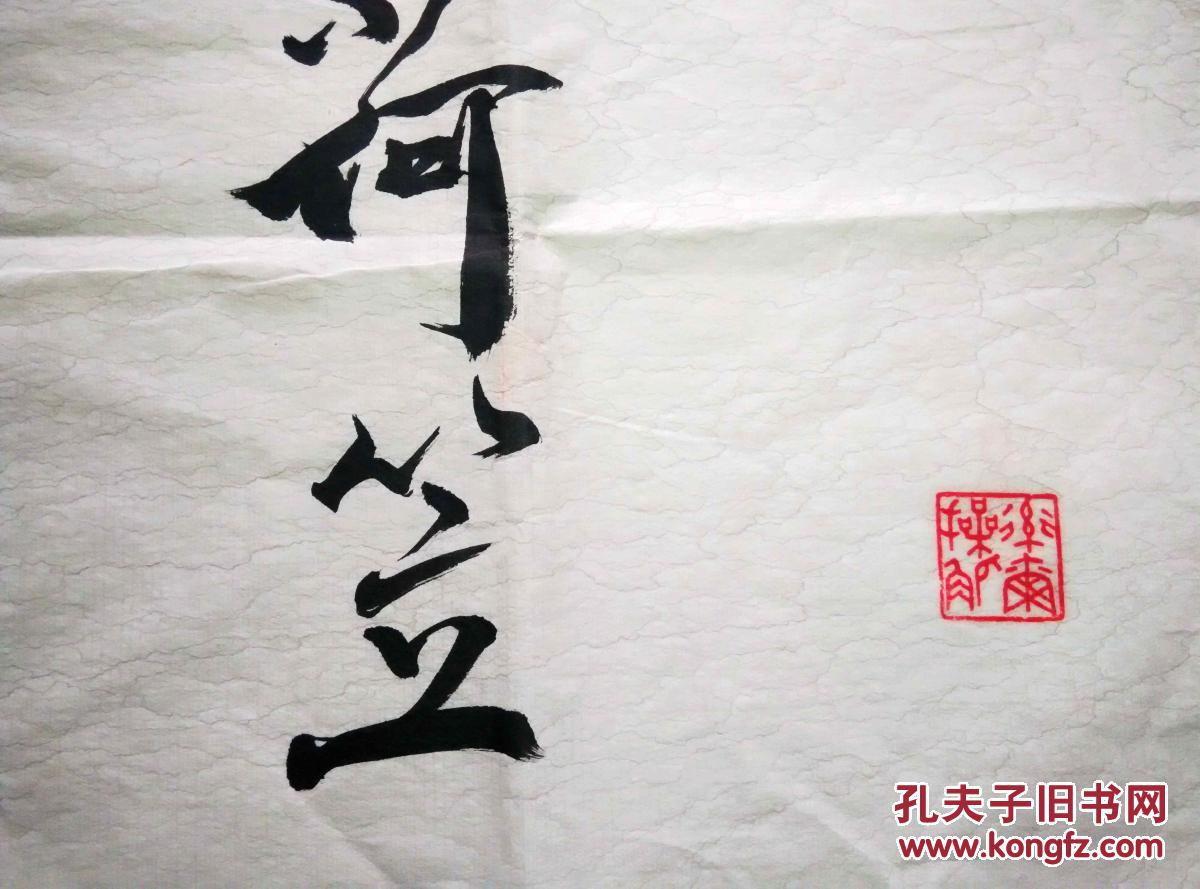 荷笠
孔夫子旧书网
www.kongfz.com